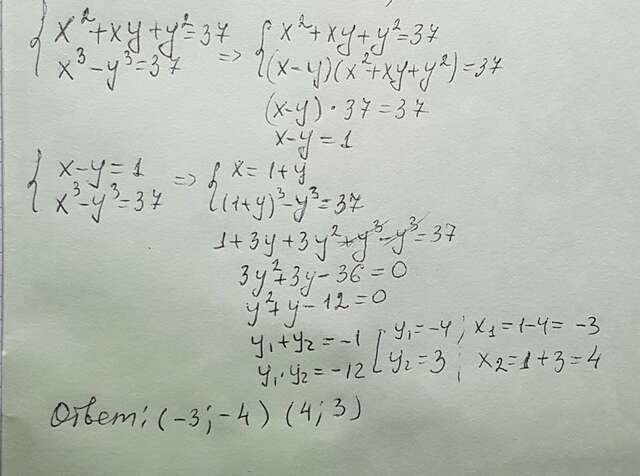 { x²+xy+y²=37 => { x²+xy+y²=37
x³-y³=37 (x-y)(x²+xy+y²)=37
(x-y)·37=37
x-y=1
{ x-y=1 => { x=1+y
x³-y³=37 (1+y)³-y³=37
1+3y+3y²+y³-y³=37
3y²+3y-36=0
y²+y-12=0
y₁+y₂=-1 [ y₁=-4; x₁=1-4=-3
y₁·y₂=-12 y₂=3; x₂=1+3=4
Ответ: (-3;-4) (4;3)